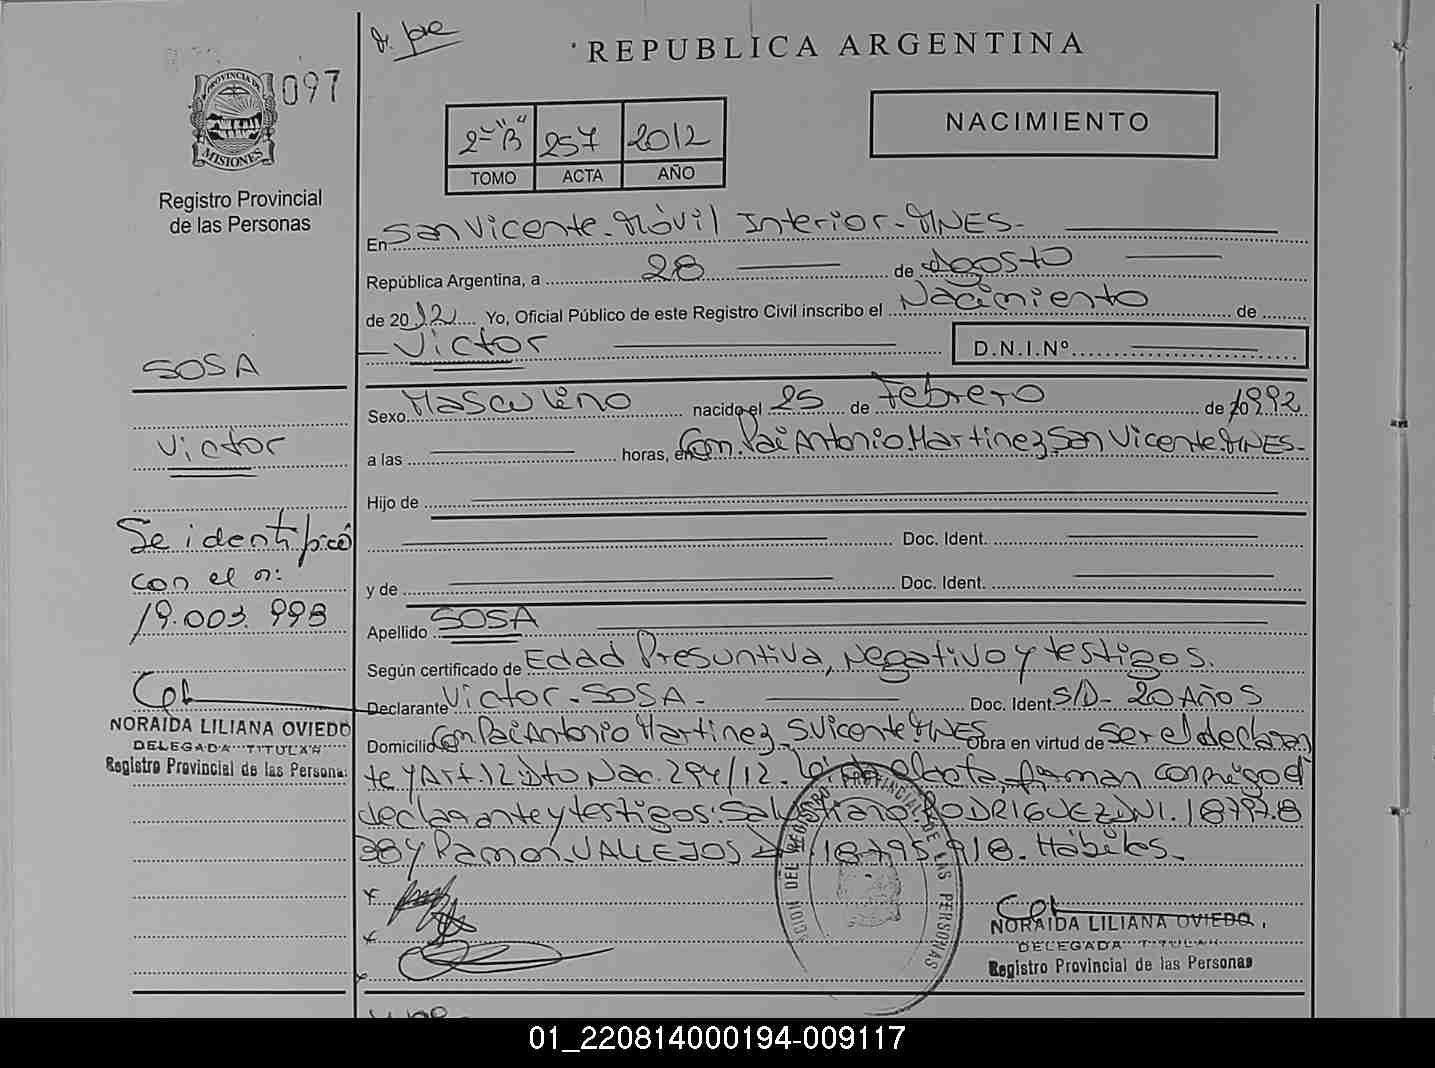 097
PROVINCIA DE
MISIONES
Registro Provincial
de las Personas
REPUBLICA ARGENTINA
2º "B" 257 2012
TOMO ACTA AÑO
NACIMIENTO
En San Vicente-Móvil Interior-MNES-
República Argentina, a 28 de Agosto
de 2012 Yo, Oficial Público de este Registro Civil inscribo el Nacimiento de
Victor D.N.I.Nº
Sexo Masculino nacido el 25 de Febrero de 1992
a las horas, en Com. Pai Antonio Martinez, San Vicente MNES-
Hijo de
Doc. Ident.
y de Doc. Ident.
Apellido SOSA
Según certificado de Edad Presuntiva, negativo y testigos.
Declarante Victor-SOSA- Doc. Ident. S/D- 20 Años
Domicilio Com Pai Antonio Martinez, S.Vicente MNES Obra en virtud de ser el declaran
te y Art. 12 Dto Nac. 294/12. Leida el acta, firman conmigo el
declarante y testigos: Salustiano RODRIGUEZ DNI. 18797.8
38 y Ramon VALLEJOS 18795918. Hábiles-
SOSA
Victor
Se identificó
con el n:
19.003.998
NORAIDA LILIANA OVIEDO
DELEGADA TITULAR
Registro Provincial de las Personas
REGISTRO PROVINCIAL DE LAS PERSONAS
NORAIDA LILIANA OVIEDO
DELEGADA TITULAR
Registro Provincial de las Personas
01_220814000194-009117